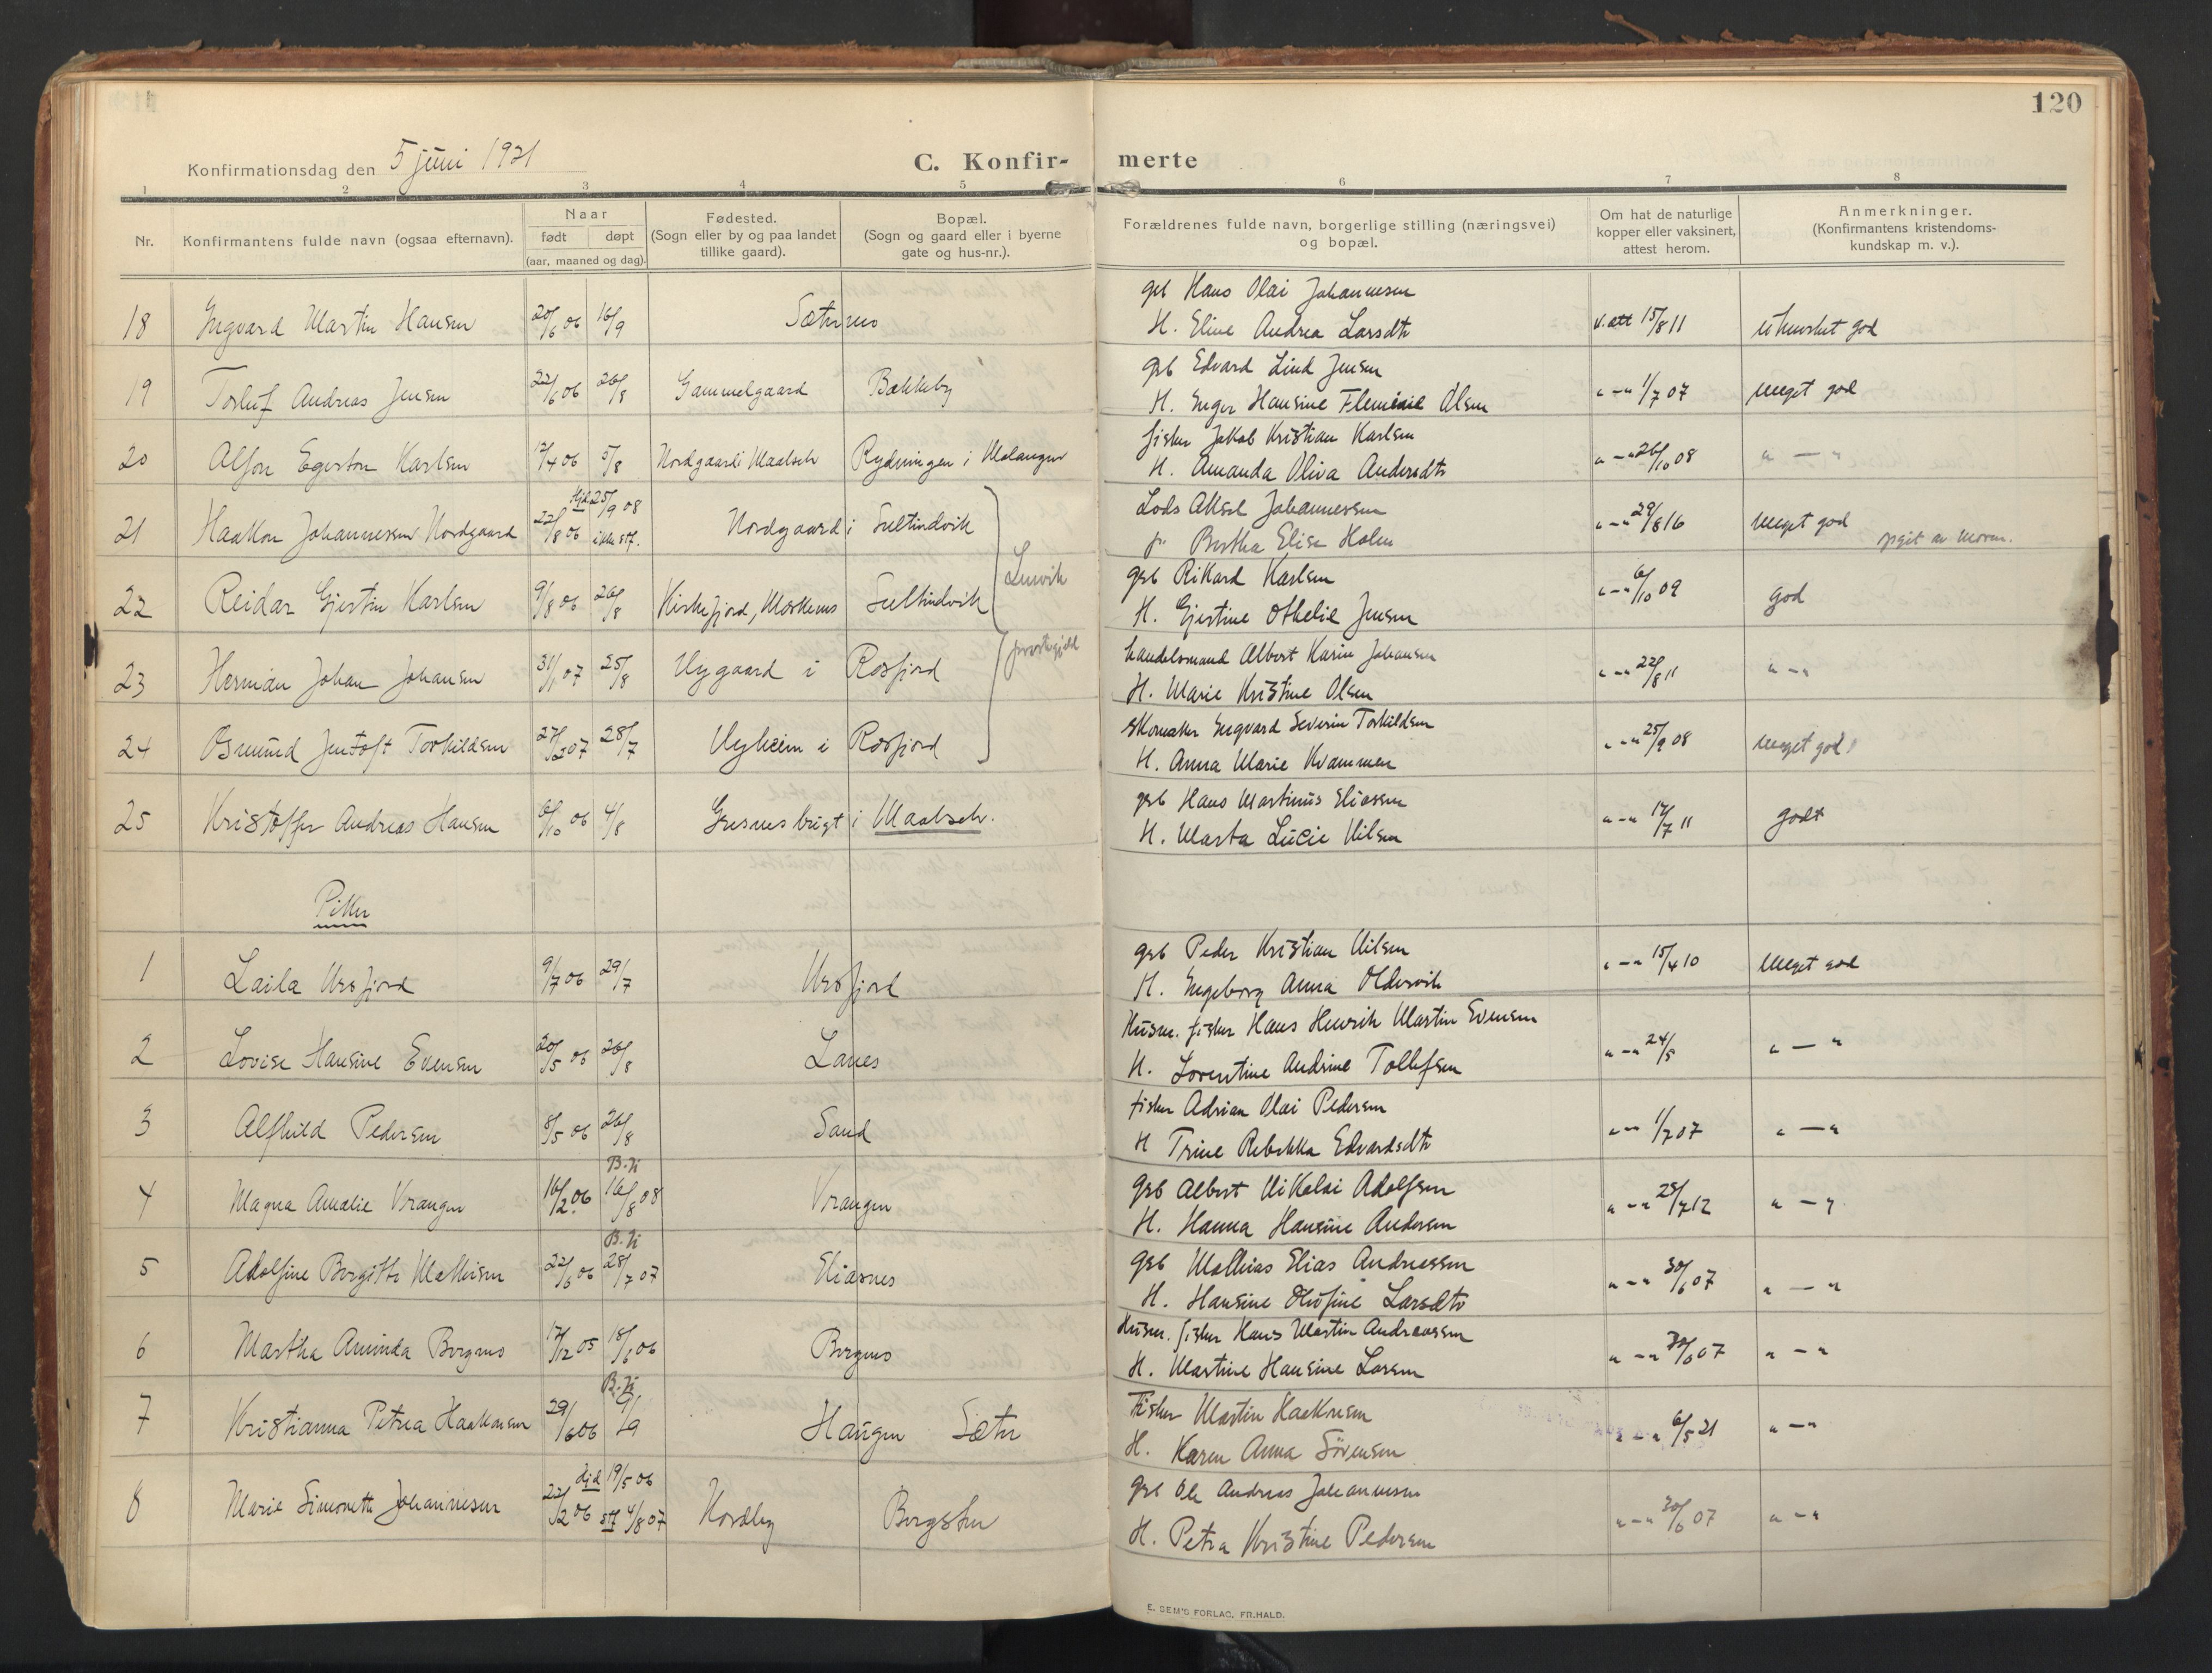 120
Konfirmationsdag den 5 juni 1921
C. Konfir- merte
1 2 3 4 5 6 7 8
Nr.
Konfirmantens fulde navn (ogsaa efternavn).
Naar
født døpt
(aar, maaned og dag).
Fødested.
(Sogn eller by og paa landet
tillike gaard).
Bopæl.
(Sogn og gaard eller i byerne
gate og hus-nr.).
Forældrenes fulde navn, borgerlige stilling (næringsvei)
og bopæl.
Om hat de naturlige
kopper eller vaksinert,
attest herom.
Anmerkninger.
(Konfirmantens kristendoms-
kundskap m. v.).
grb Hans Olai Johannesen
18 Ingvard Martin Hansen 20/6 06 16/9 H. Eline Andrea Larsdtr v. att 15/8 11 god
grb Edvard Lind Jensen
19 Torluf Andreas Jensen 22/6 06 26/8 Gammelgaard Bakkeby H. Inger Hansine Flemine Olsen " - " 1/7 07 meget god
fisker Jakob Kristian Karlsen
20 Alfon Egerton Karlsen 17/4 06 5/8 Nordgaard i Maalselv Rydningen i Malangen H. Amanda Oliva Andersdtr " - " 26/10 08 " — "
Hjd 25/9 08
Lods Aksel Johannessen
21 Haakon Johannessen Nordgaard 22/8 06 ikke stf. Nordgaard i Sultindvik p. Bertha Elise Holm " - " 29/8 16 meget god
Lenvik
grb Rikard Karlsen
22 Reidar Gjertin Karlsen 9/8 06 26/8 Kirkefjord, Moskenes Sultindvik H. Gjertine Othelie Jensen " - " 6/10 09 god
prestegjeld
handelsmand Albert Karin Johansen
23 Herman Johan Johansen 31/1 07 25/8 Nygaard i Rosfjord H. Marie Kristine Olsen " - " 22/8 11 " - "
skomaker Ingvard Severin Torkildsen
24 Osmund Jentoft Torkildsen 27/2 07 28/7 Nyheim i Rosfjord H. Anna Marie Kvammen " - " 25/9 08 meget god
grb Hans Martinus Eliassen
25 Kristoffer Andreas Hansen 6/10 06 4/8 i Maalselv. H. Marta Lucie Nilsen " - " 17/7 11 godt
Piker
grb Peder Kristian Nilsen
1 Laila Ersfjord 9/7 06 29/7 Ersfjord H. Ingeborg Anna Oldervik " - " 15/4 10 meget god
Husm. fisker Hans Henrik Martin Evensen
2 Lovise Hansine Evensen 20/5 06 26/8 Lanes H. Lorentine Andrine Tollefsen " - " 24/5 " — "
fisker Adrian Olai Pedersen
3 Alfhild Pedersen 8/5 06 26/8 Sand H Trine Rebekka Edvardsdtr " - " 1/7 07 " — "
B. ti
grb Albert Nikolai Adolfsen
4 Magna Amalie Vrangen 16/2 06 16/8 08 Vrangen H. Hanna Hansine Andersen " - " 25/7 12 " - "
B. ti
grb Mathias Elias Andreassen
5 Adolfine Bergitte Mathisen 22/6 06 28/7 07 Eliasnes H. Hansine Olufine Larsdtr " - " 30/6 07 " — "
Husm. fisker Hans Martin Andreassen
6 Martha Aminda Bergmo 17/12 05 18/6 06 Bergmo H. Martine Hansine Larsen " - " 30/6 07 " - "
B. ti
Fisker Martin Haakonsen
7 Kristianna Petrea Haakonsen 29/6 06 9/9 Haugen Sæter H. Karen Anna Sörensen " - " 6/5 21 " - "
djd 19/5 06
grb Ole Andreas Johannesen
8 Marie Simonette Johannesen 22/2 06 stf 4/8 07 Nordby H. Petra Kristine Pedersen " - " 30/6 07 " - "
E. SEM'S FORLAG, FR.HALD.